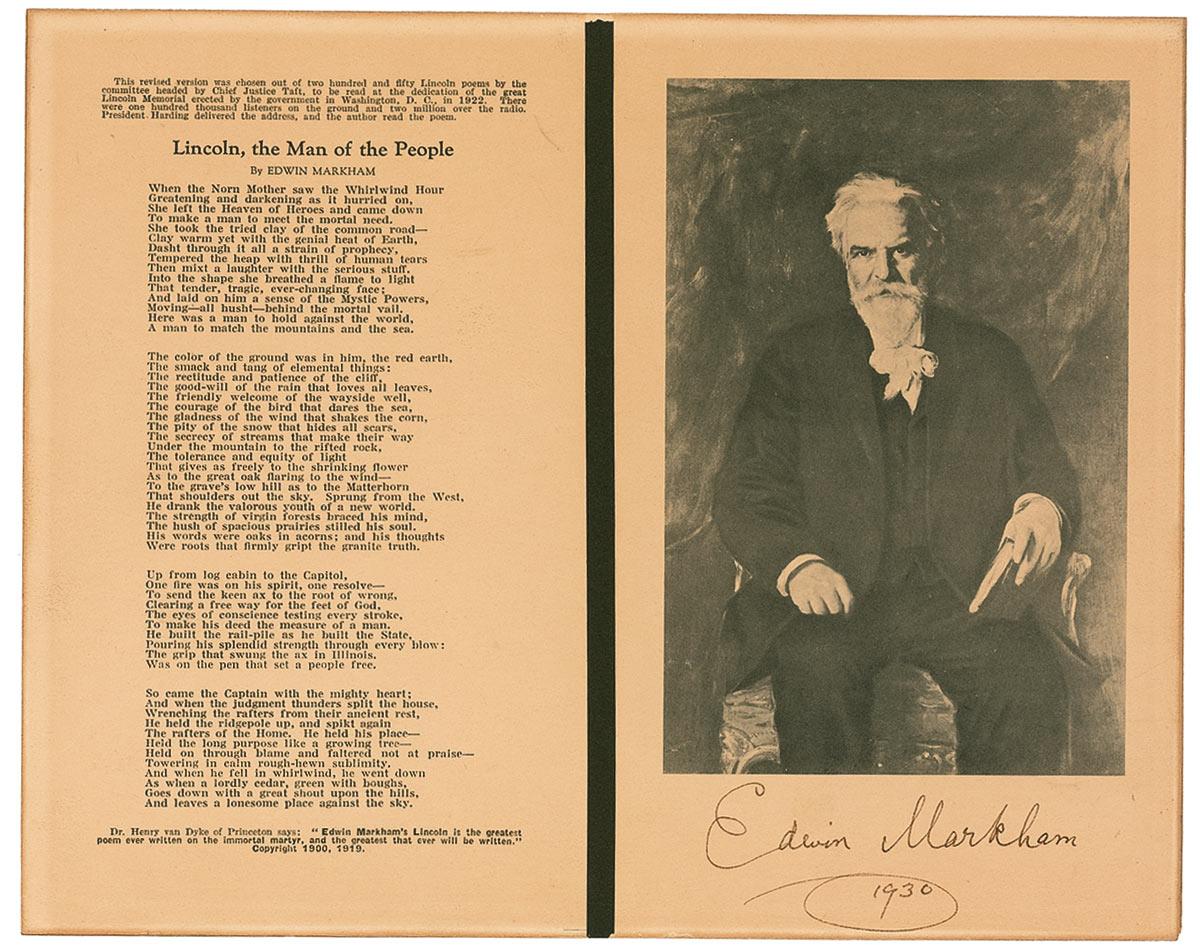 This revised version was chosen out of two hundred and fifty Lincoln poems by the
committee headed by Chief Justice Taft, to be read at the dedication of the great
Lincoln Memorial erected by the government in Washington, D. C., in 1922. There
were one hundred thousand listeners on the ground and two million over the radio.
President Harding delivered the address, and the author read the poem.
Lincoln, the Man of the People
By EDWIN MARKHAM
When the Norn Mother saw the Whirlwind Hour
Greatening and darkening as it hurried on,
She left the Heaven of Heroes and came down
To make a man to meet the mortal need.
She took the tried clay of the common road—
Clay warm yet with the genial heat of Earth,
Dasht through it all a strain of prophecy,
Tempered the heap with thrill of human tears
Then mixt a laughter with the serious stuff.
Into the shape she breathed a flame to light
That tender, tragic, ever-changing face;
And laid on him a sense of the Mystic Powers,
Moving—all husht—behind the mortal vail.
Here was a man to hold against the world,
A man to match the mountains and the sea.
The color of the ground was in him, the red earth,
The smack and tang of elemental things:
The rectitude and patience of the cliff,
The good-will of the rain that loves all leaves,
The friendly welcome of the wayside well,
The courage of the bird that dares the sea,
The gladness of the wind that shakes the corn,
The pity of the snow that hides all scars,
The secrecy of streams that make their way
Under the mountain to the rifted rock,
The tolerance and equity of light
That gives as freely to the shrinking flower
As to the great oak flaring to the wind—
To the grave's low hill as to the Matterhorn
That shoulders out the sky. Sprung from the West,
He drank the valorous youth of a new world.
The strength of virgin forests braced his mind,
The hush of spacious prairies stilled his soul.
His words were oaks in acorns; and his thoughts
Were roots that firmly gript the granite truth.
Up from log cabin to the Capitol,
One fire was on his spirit, one resolve—
To send the keen ax to the root of wrong,
Clearing a free way for the feet of God,
The eyes of conscience testing every stroke,
To make his deed the measure of a man.
He built the rail-pile as he built the State,
Pouring his splendid strength through every blow:
The grip that swung the ax in Illinois.
Was on the pen that set a people free.
So came the Captain with the mighty heart;
And when the judgment thunders split the house,
Wrenching the rafters from their ancient rest,
He held the ridgepole up, and spikt again
The rafters of the Home. He held his place—
Held the long purpose like a growing tree—
Held on through blame and faltered not at praise—
Towering in calm rough-hewn sublimity.
And when he fell in whirlwind, he went down
As when a lordly cedar, green with boughs,
Goes down with a great shout upon the hills,
And leaves a lonesome place against the sky.
Dr. Henry van Dyke of Princeton says: "Edwin Markham's Lincoln is the greatest
poem ever written on the immortal martyr, and the greatest that ever will be written."
Copyright 1900, 1919.
Edwin Markham
1930